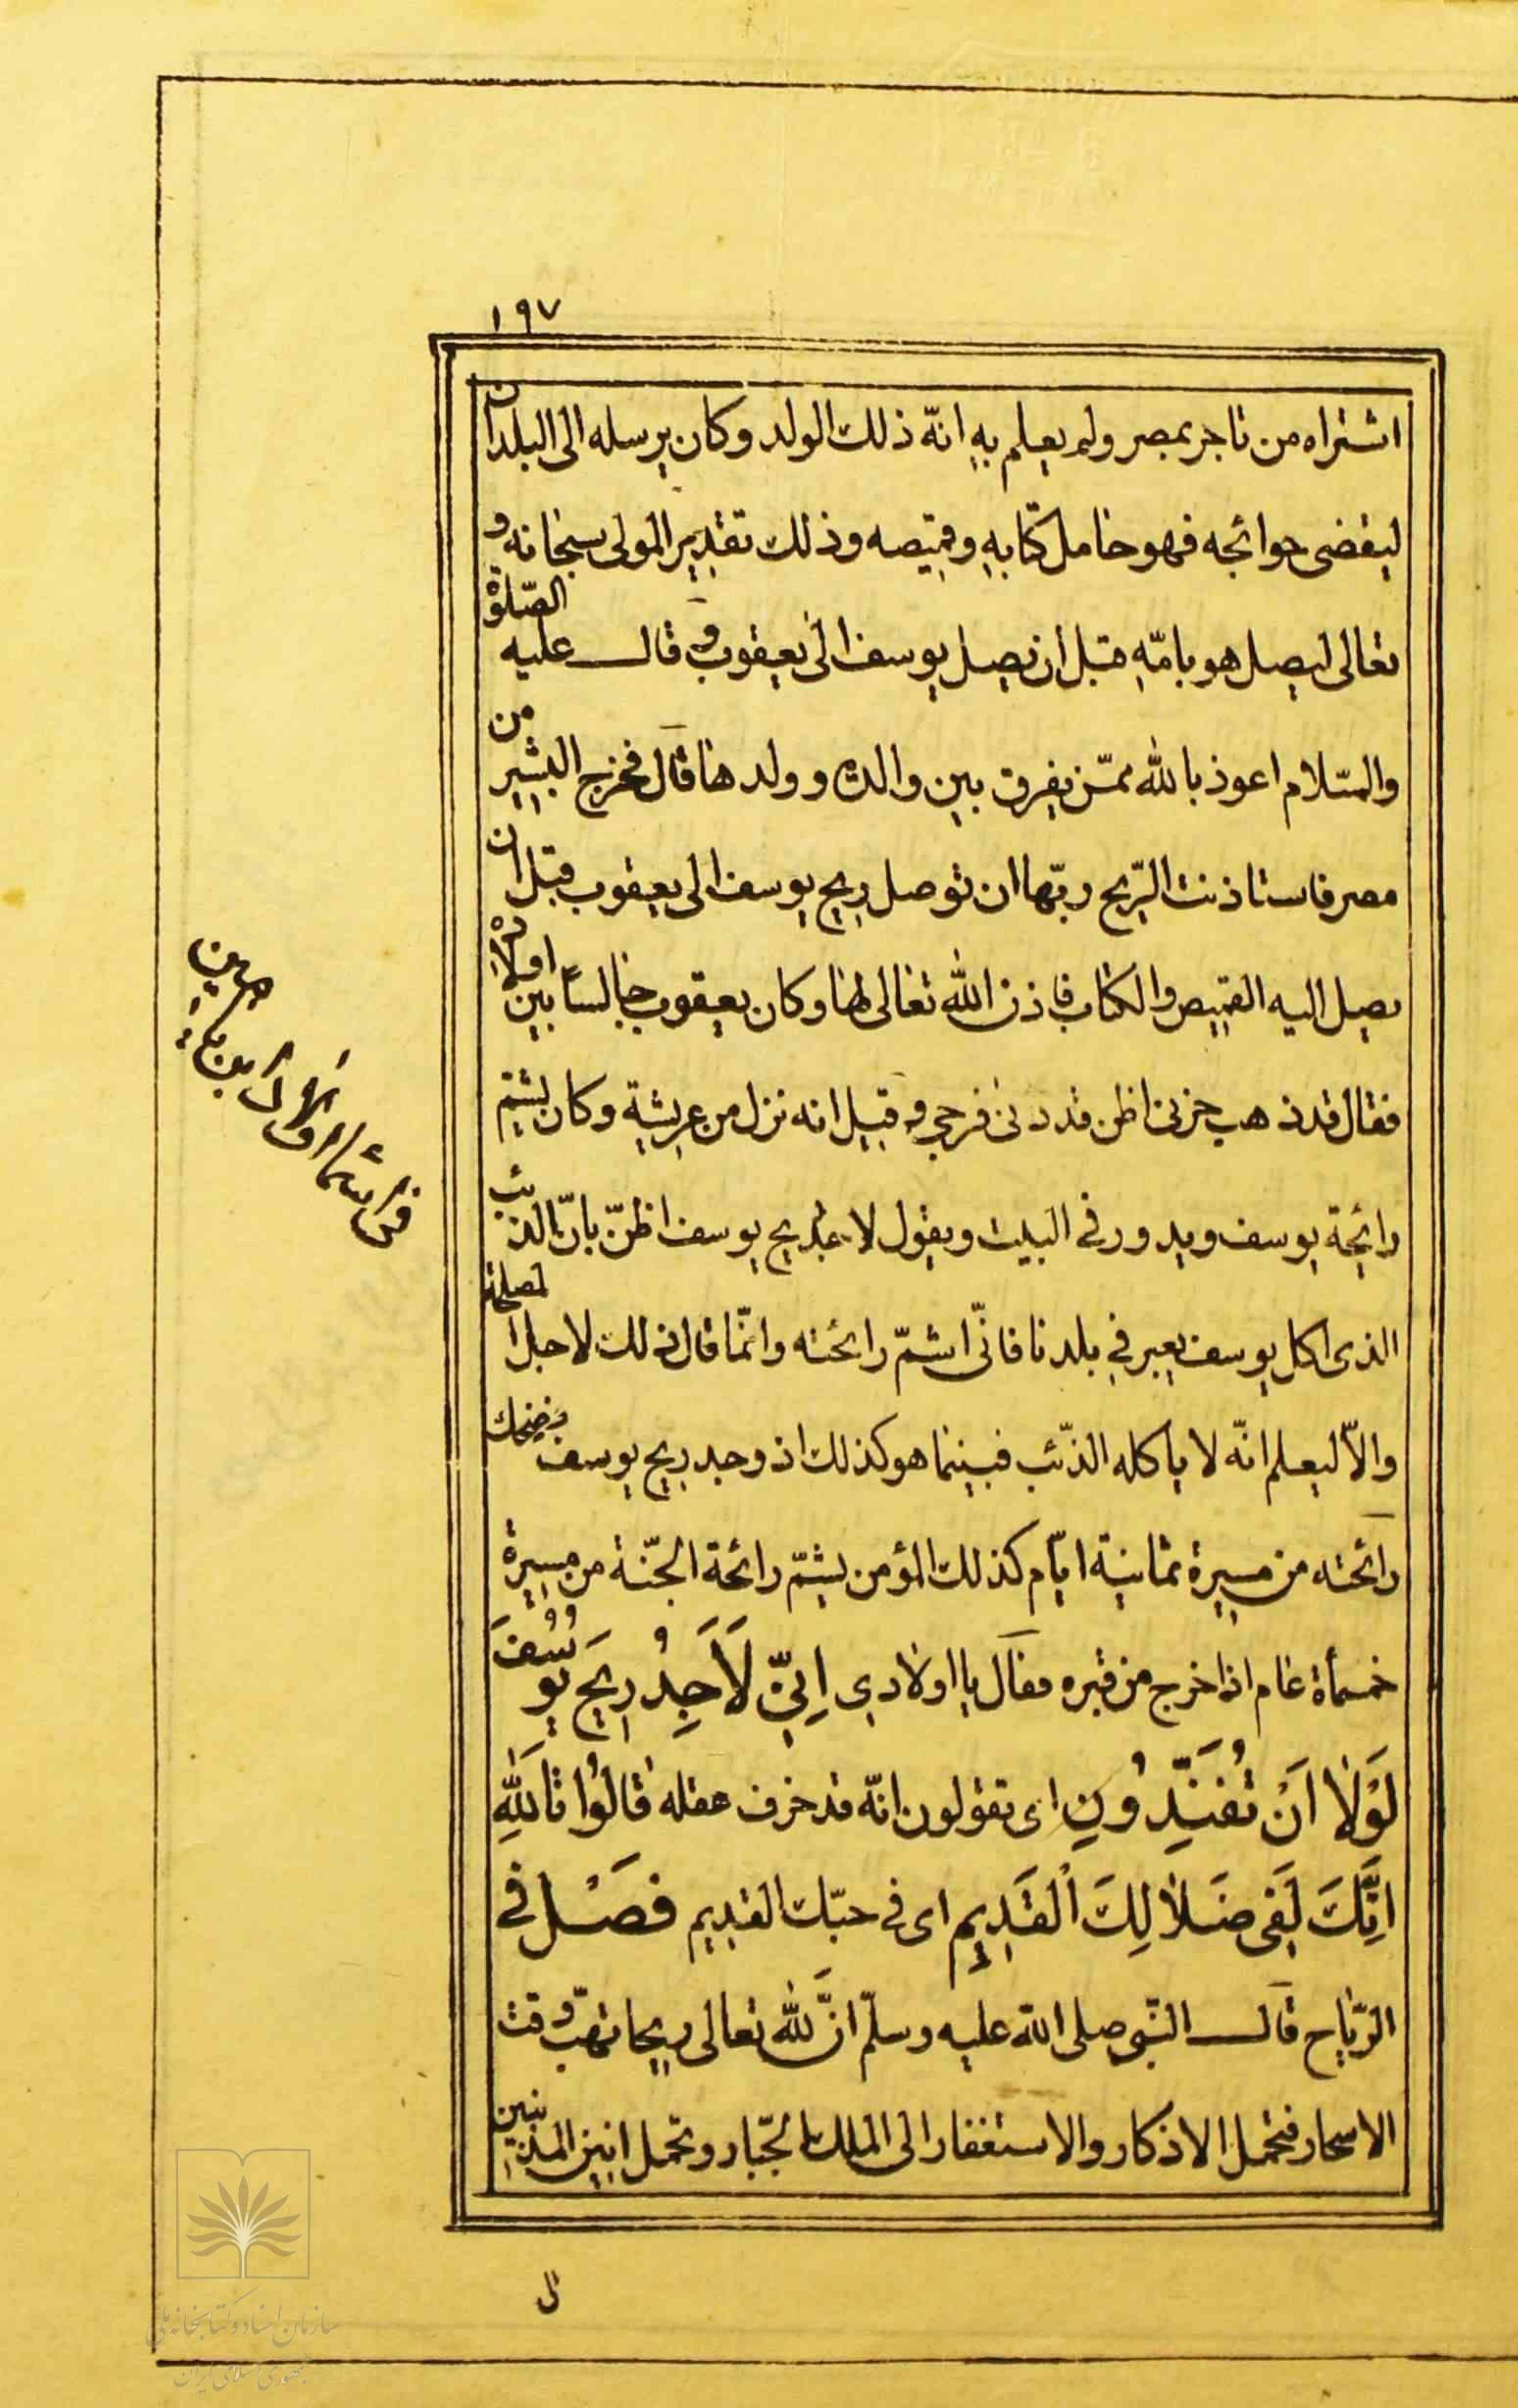 ١٩٧
اشتراه من تاجر بمصر ولم يعلم به انّه ذلك الولد وكان يرسله الى البلدان
ليقضى حوائجه فهو حامل كتابه وقميصه وذلك تقدير المولى سبحانه و
تعالى ليصل هو بامّه قبل ان يصل يوسف الى يعقوب وقال عليه الصّلوة
والسّلام اعوذ بالله ممّن يفرق بين والدة وولدها قال فخرج البشير من
مصر فاستاذنت الرّيح ربّها ان توصل ريح يوسف الى يعقوب قبل ان
يصل اليه القميص والكتاب فاذن الله تعالى لها وكان يعقوب جالساً بين اولاده
فقال قد ذهب حزنى اظن قد دنى فرجى وقيل انه نزل من عريشة وكان يشمّ
رائحة يوسف ويدور فى البيت ويقول لاجد ريح يوسف اظنّ بانّ الذئب
الذى اكل يوسف يعبر في بلدنا فانّى اشمّ رائحته وانّما قال ذلك لاجل المصلحة
والّا ليعلم انّه لا ياكله الذّئب فبينما هو كذلك اذ وجد ريح يوسف وضحك
رائحته من مسيرة ثمانية ايّام كذلك المؤمن يشمّ رائحة الجنّة من مسيرة
خمسمأة عام اذا خرج من قبره فقال يا اولادي اِنِّي لَاَجِدُ رِيحَ يُوسُفَ
لَوْلَا اَنْ تُفَنِّدُونِ اى تقولون انّه قد خرف عقله قَالُوا تَاللّٰهِ
اِنَّكَ لَفِى ضَلَالِكَ الْقَدِيمِ اى فى حبّك القديم فصل فى
الرّياح قال النّبى صلى الله عليه وسلّم انَّ لله تعالى ريحا تهبّ وقت
الاسحار فتحمل الاذكار والاستغفار الى الملك الجبّار وتحمل انين المذنبين
سازمان اسناد و کتابخانه ملی
جمهوری اسلامی ایران